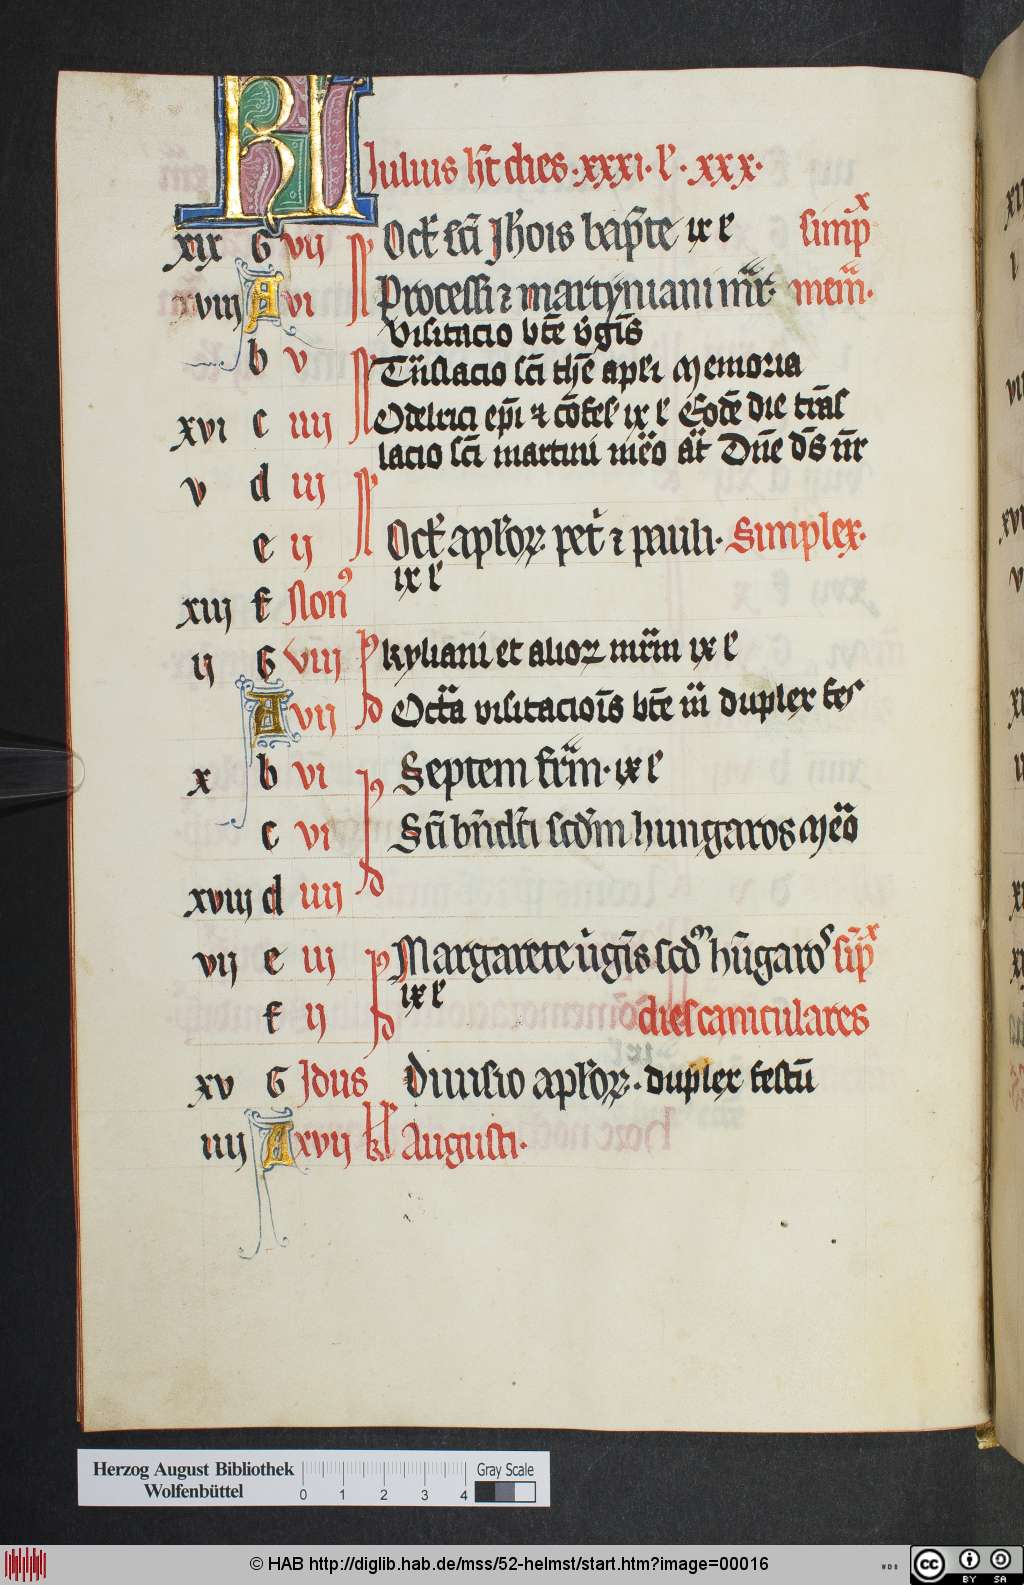 KL
Julius ht dies · xxxi · l' · xxx ·
xix G vij N Oct̄ sc̄i Jhōis bapt̄e ix l' simpx
xviij A vi N Processi ⁊ martyniani mr̄ · mem̄ ·
visitacio bt̄e v̄gīs
b v N Trn̄slacio sc̄i thē apl'i memoria
xvi c iiij N Odelrici ep̄i ⁊ cōfes' ix l' Eodē die trās
lacio sc̄i martini mēo ar̄ Dn̄e ds̄ nr̄
v d iij N
e ij N Oct̄ apl'oꝝ · pet' ⁊ pauli · Simplex ·
ix l'
xiij f Non⁹
ij G viij Id kyliani et alioꝝ mr̄m ix l'
A vij Octā visitaciōis bt̄e v̄ duplex fes
x b vi Id Septem fr̄m · ix l'
c vi Sc̄i bn̄dc̄i scdm̄ hungaros mēo
xviij d iiij Id
vij e iij Id Margarete v̄gīs scdm̄ hūgaros sīpx
ix l'
f ij dies caniculares
xv G Idus Diuisio apl'oꝝ · duplex festū
iiij A xvij kl' Augusti ·
Herzog August Bibliothek
Wolfenbüttel
0 1 2 3 4
Gray Scale
© HAB http://diglib.hab.de/mss/52-helmst/start.htm?image=00016
cc BY SA